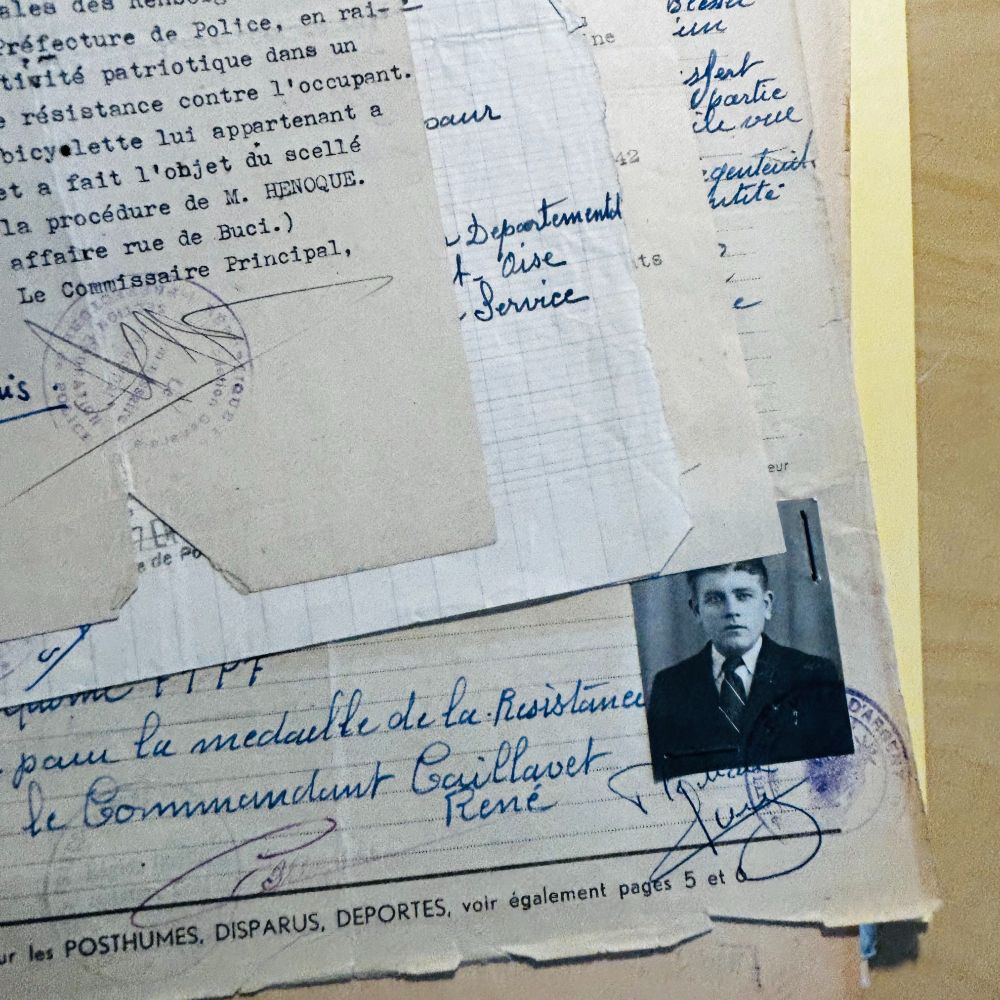 ales des Renseig
Préfecture de Police, en rai-
tivité patriotique dans un
e résistance contre l'occupant.
bicyclette lui appartenant a
et a fait l'objet du scellé
la procédure de M. HENOQUE.
affaire rue de Buci.)
Le Commissaire Principal,
Departemental
t- Oise
Service
ne
un
sfert
partie
de vue
42
genteuil,
ntité
ts
2
e
eur
e de Po
FTPF
pour la medaille de la Resistance
le Commandant Caillavet
René
D'ARGENT
ur les POSTHUMES, DISPARUS, DEPORTES, voir également pages 5 et 6